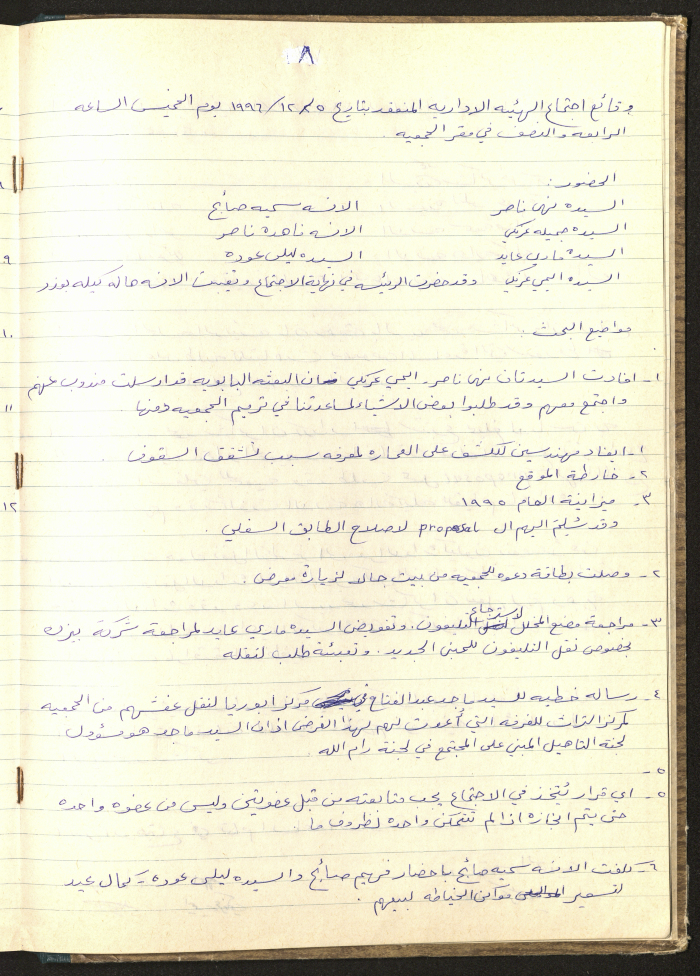 ٨
وقائع اجتماع الهيئه الاداريه المنعقد بتاريخ ٥/١٢/١٩٩٦ يوم الخميس الساعه
الرابعه والنصف في مقر الجمعيه .
الحضور :
السيده نهى ناصر الانسه سميه صايج
السيده جميله عركي الانسه ناهدة ناصر
السيده ماري عابد السيده ليلى عوده
السيده اليمي عركي وقد حضرت الرئيسه في نهاية الاجتماع وتغيبت الانسه هاله كيله بعذر
مواضيع البحث :
١- افادت السيدتان نهى ناصر - اليمي عركي ان البعثه البابويه قد ارسلت مندوب عنهم
واجتمع معهم وقد طلبوا بعض الاشياء لمساعدتنا في ترميم الجمعيه ومنها .
١- ايفاد مهندسين للكشف على العماره لمعرفه سبب تشقق السقوف .
٢- خارطة الموقع
٣- ميزانية العام ١٩٩٥
وقد سُلِّم اليهم ال proposal لاصلاح الطابق السفلي .
٢- وصلت بطاقة دعوه للجمعيه من بيت جالا لزيارة معرض .
٣- مراجعة مصنع المخلل لاسترجاع التليفون . وتفويض السيده ماري عابد لمراجعة شركة بيزك
بخصوص نقل التليفون للمبنى الجديد . وتعبئة طلب لنقله
٤- رساله خطيه للسيد ماجد عبد الفتاح في مركز ابو ريا لنقل عفشهم من الجمعيه
لمركز التراث للغرفه التي أُعدت لهم لهذا الغرض اذ ان السيد ماجد هو مسؤول
لجنة التاهيل المبني على المجتمع في لجنة رام الله .
٥-
٥- اي قرار يُتخذ في الاجتماع يجب متابعته من قبل عضوتين وليس من عضوه واحده
حتى يتم انجازه اذا لم تتمكن واحدة لظروف ما .
٦- كلفت الانسه سميه صايج باحضار فهيم صايج والسيده ليلى عوده - كمال عيد
لتسعير مواكن الخياطه لبيعهم .
٩
١٠
١١
١٢